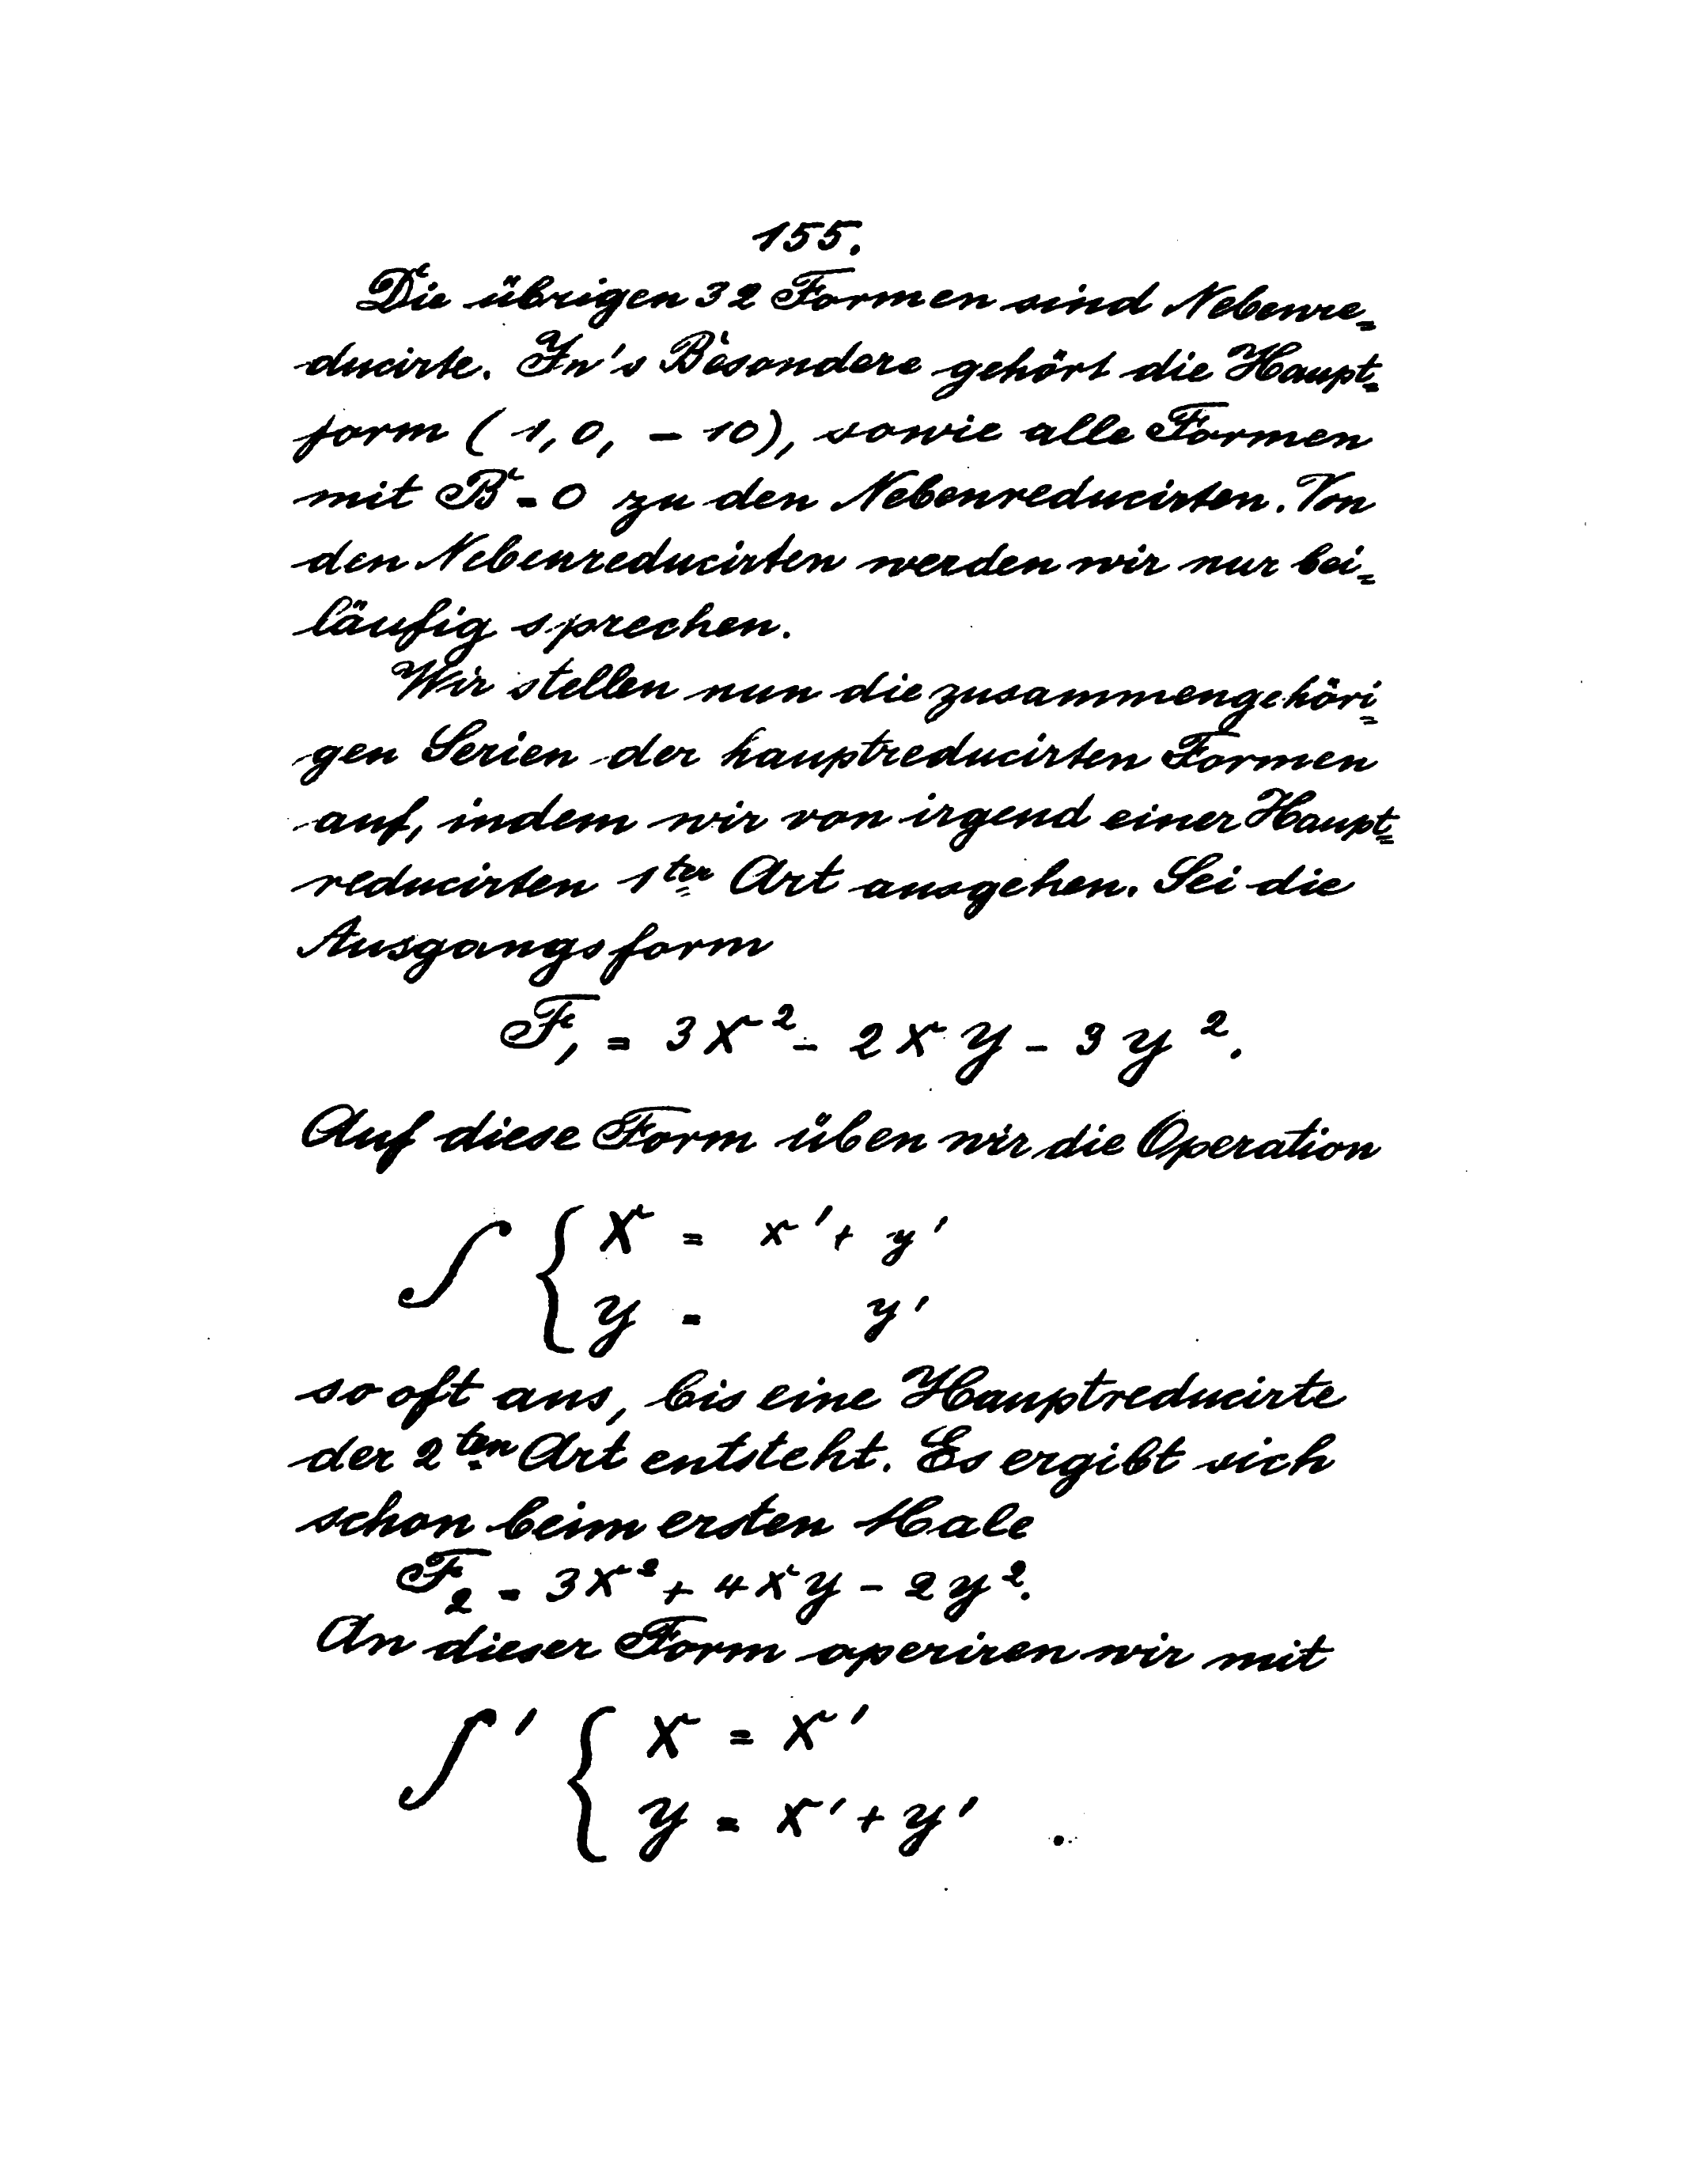 155.
Die übrigen 32 Formen sind Nebenre=
ducirte. In's Besondere gehört die Haupt=
form (1, 0, - 10), sowie alle Formen
mit B = 0 zu den Nebenreducirten. Von
den Nebenreducirten werden wir nur bei=
läufig sprechen.
Wir stellen nun die zusammengehöri=
gen Serien der hauptreducirten Formen
auf, indem wir von irgend einer Haupt=
reducirten 1ter Art ausgehen. Sei die
Ausgangsform
F₁ = 3x² - 2xy - 3y².
Auf diese Form üben wir die Operation
S { x = x' + y'
y = y'
so oft aus, bis eine Hauptreducirte
der 2ten Art entsteht. Es ergibt sich
schon beim ersten Male
F₂ = 3x² + 4xy - 2y².
An dieser Form operiren wir mit
S' { x = x'
y = x' + y' .